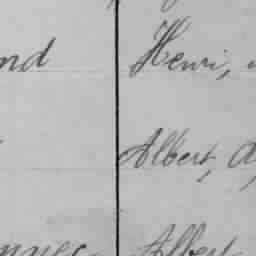 nd Henri,
Albert, A
Albert